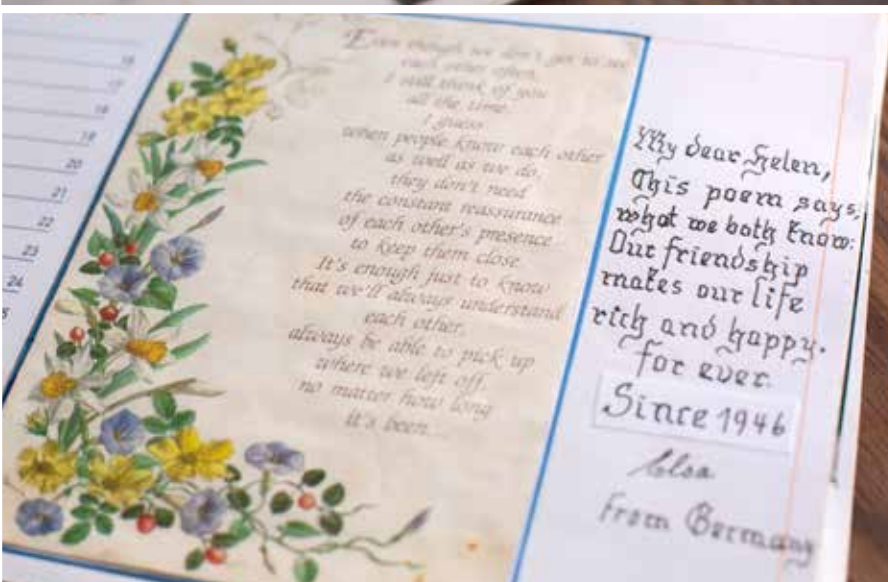 15
17
18
19
20
21
22
23
24
5
Even though we don't get to see
each other often,
I still think of you
all the time.
I guess
when people know each other
as well as we do,
they don't need
the constant reassurance
of each other's presence
to keep them close.
It's enough just to know
that we'll always understand
each other,
always be able to pick up
where we left off,
no matter how long
it's been...
My dear Helen,
This poem says,
what we both know:
Our friendship
makes our life
rich and happy.
for ever.
Since 1946
Elsa
From Germany